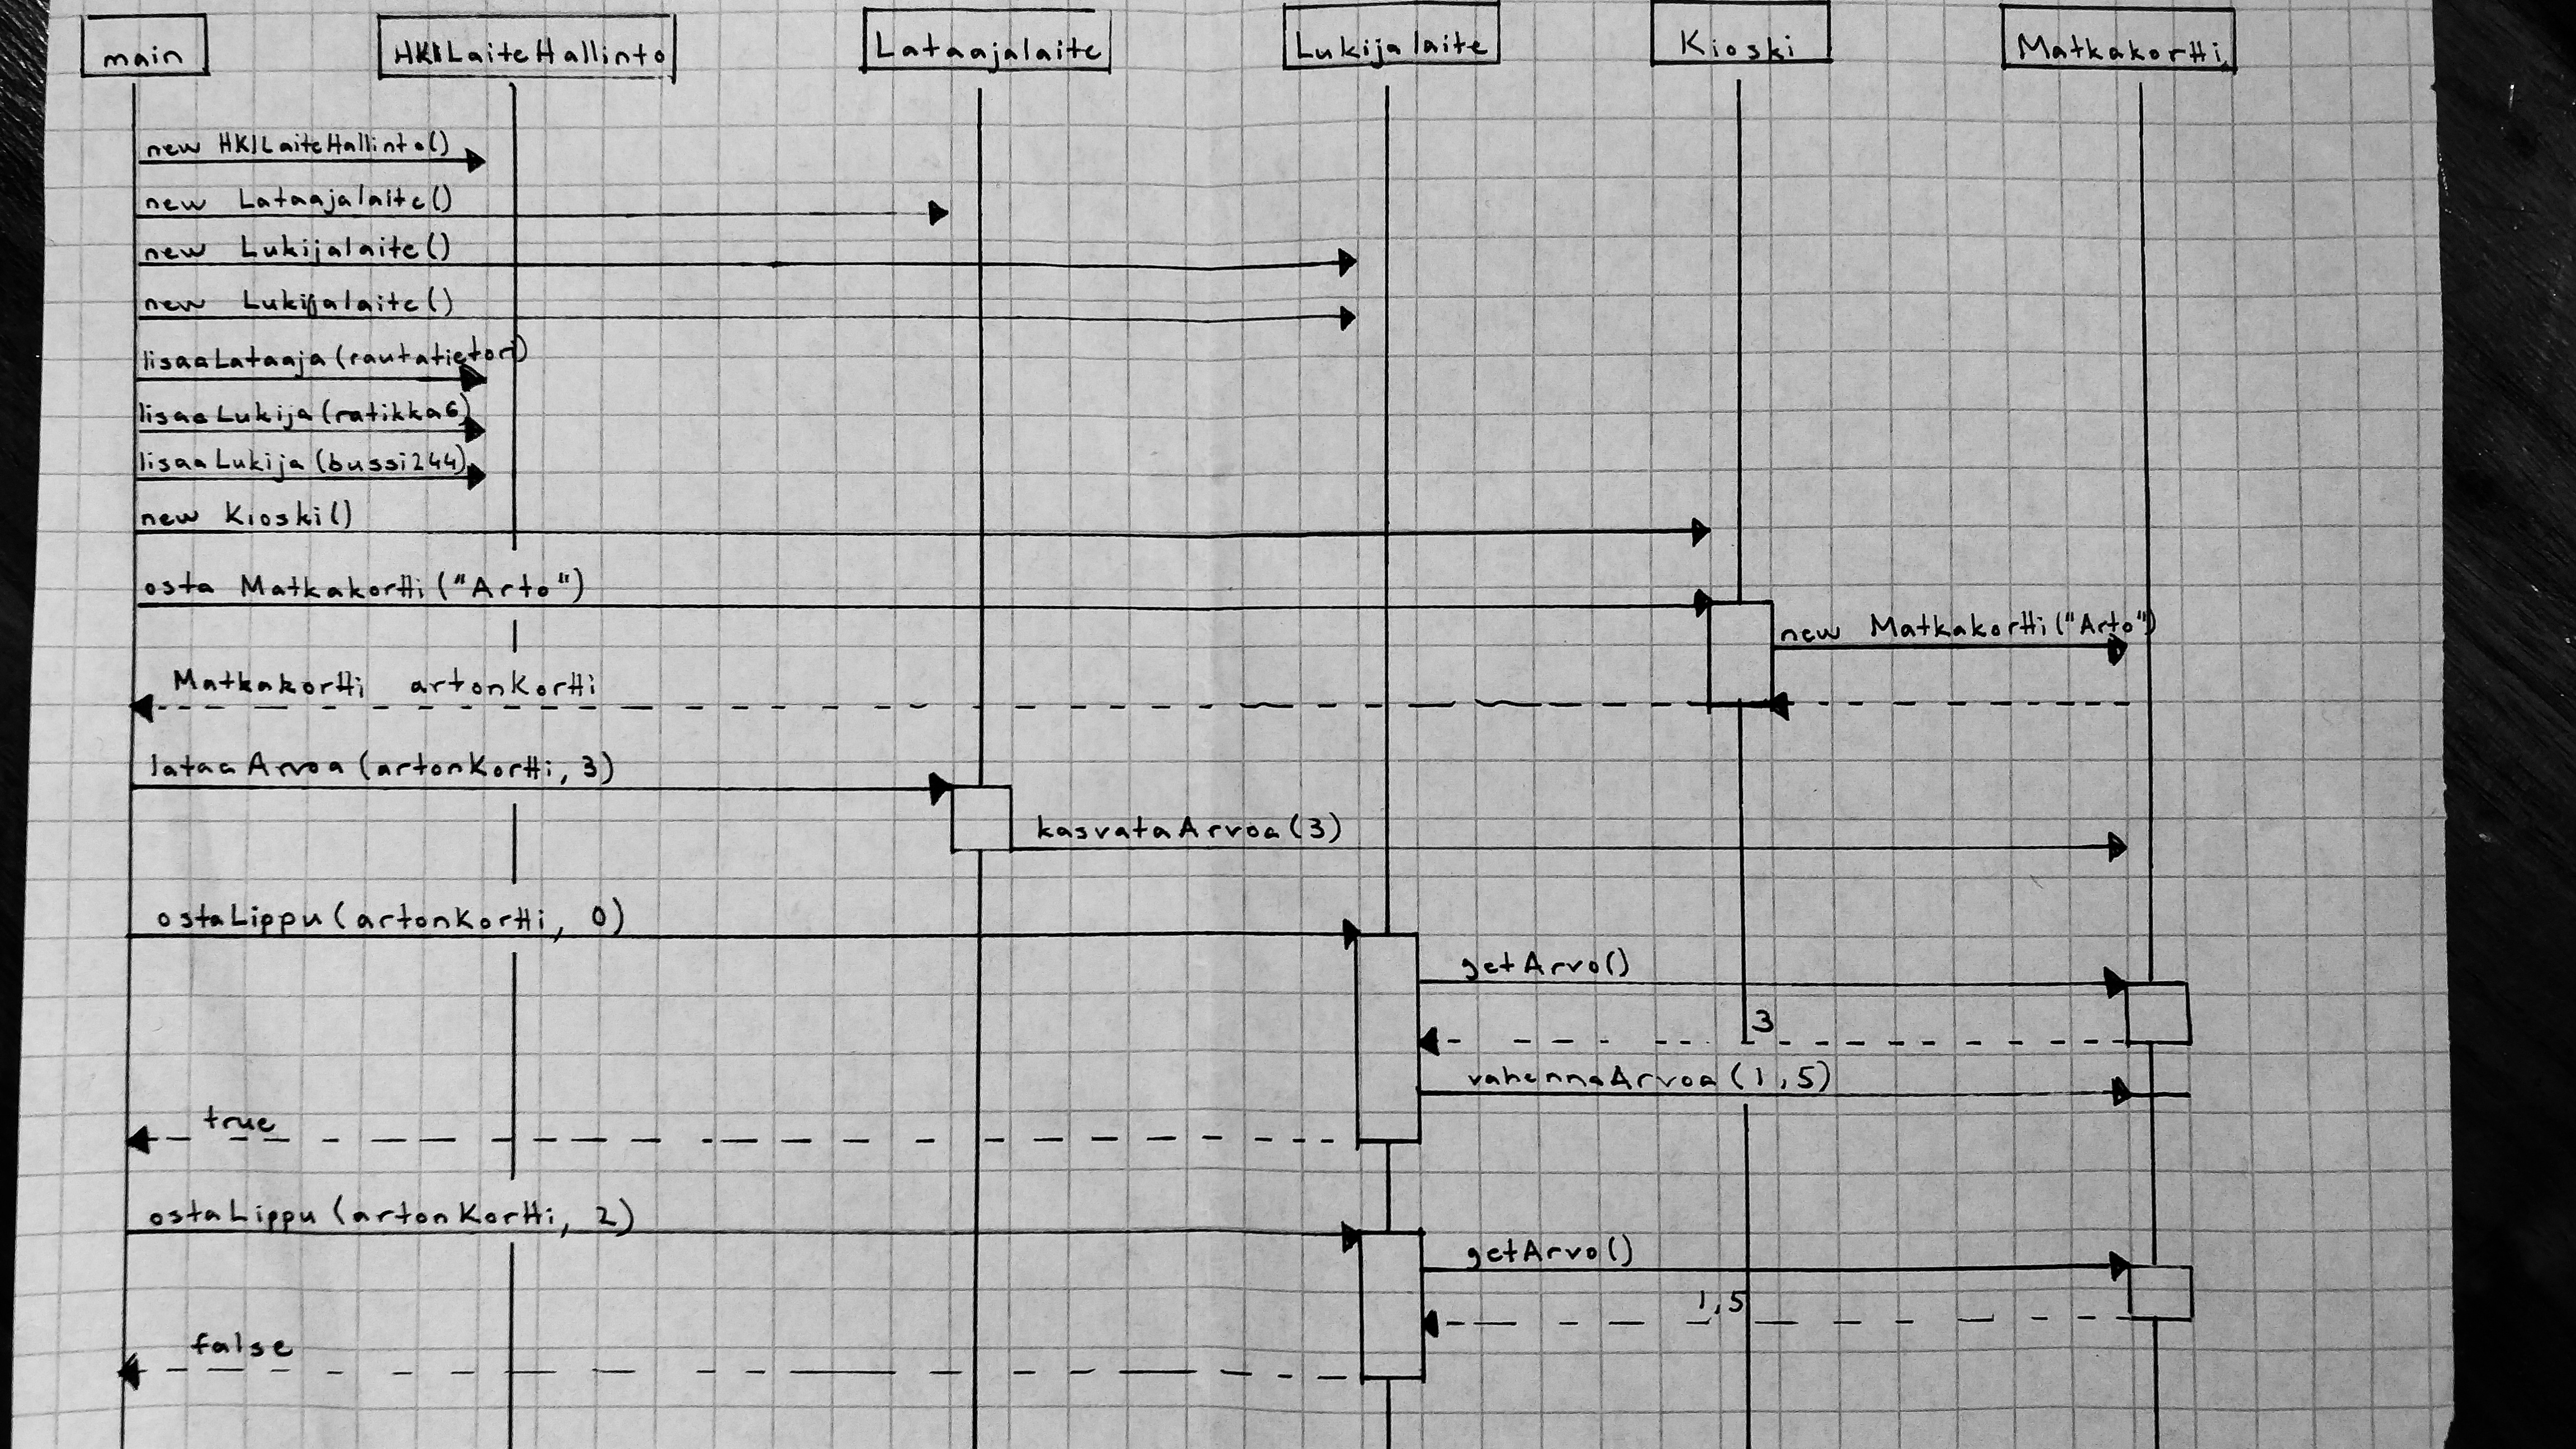 main
HKILaiteHallinto
Lataajalaite
Lukijalaite
Kioski
Matkakortti
new HKILaiteHallinto()
new Lataajalaite()
new Lukijalaite()
new Lukijalaite()
lisaaLataaja(rautatietori)
lisaaLukija(ratikka6)
lisaaLukija(bussi244)
new Kioski()
osta Matkakortti("Arto")
new Matkakortti("Arto")
Matkakortti artonKortti
lataaArvoa(artonKortti, 3)
kasvataArvoa(3)
ostaLippu(artonKortti, 0)
getArvo()
3
vahennaArvoa(1,5)
true
ostaLippu(artonKortti, 2)
getArvo()
1,5
false